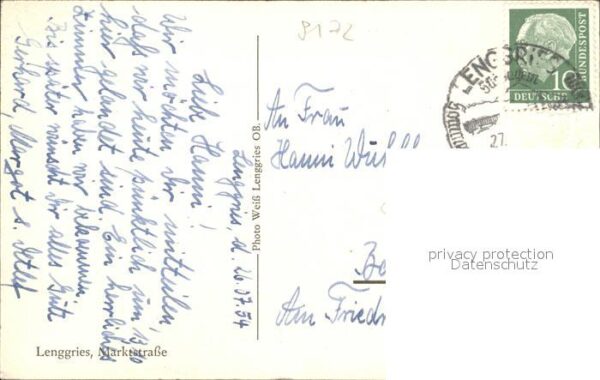 9172
Lenggries, d. 26.07.54
Liebe Hanni!
Wir möchten Dir mitteilen,
daß wir heute pünktlich um 13,10
hier gelandet sind. Ein herrliches
Zimmer haben wir bekommen.
Bis später wünscht Dir alles Gute
Gerhard, Margot u. Detlef
Lenggries, Marktstraße
Photo Weiß Lenggries OB.
An Frau
Hanni
Am Fried
LENGGRIES
27.
DEUTSCHE
BUNDESPOST
10
privacy protection
Datenschutz